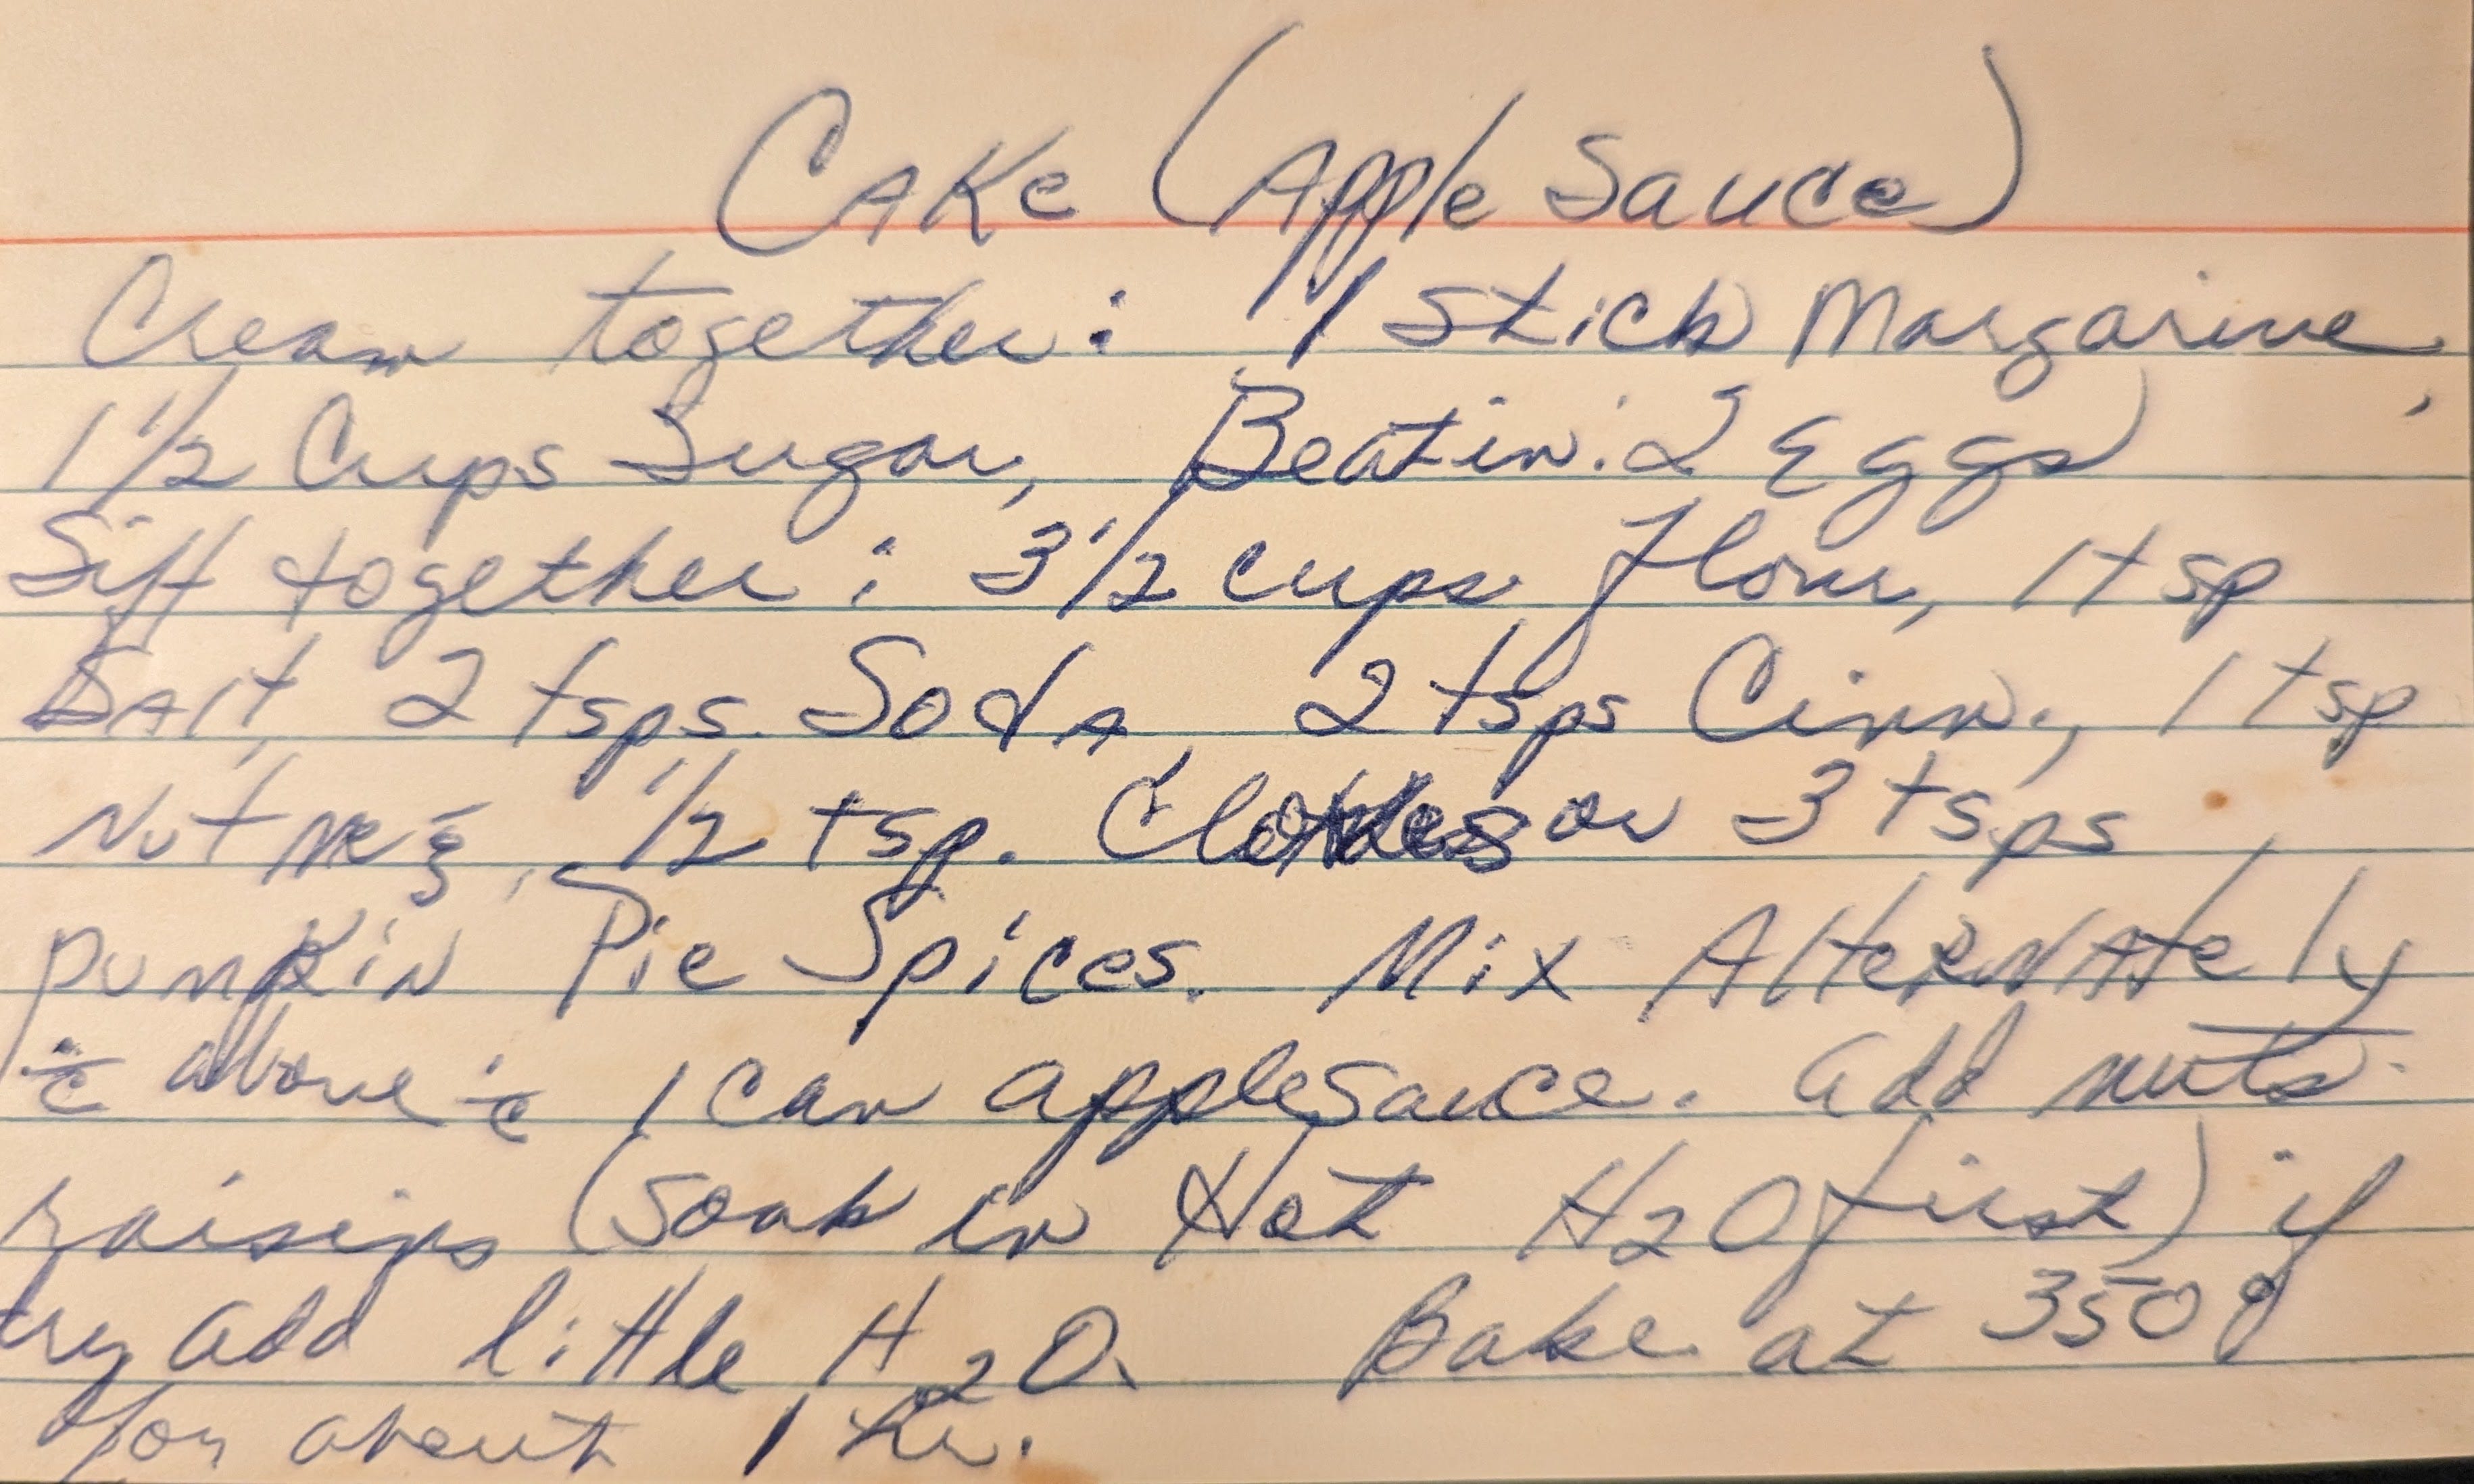 Cake (Apple Sauce)
Cream together: 1 stick Margarine,
1 1/2 Cups Sugar, Beat in: 2 Eggs
Sift together: 3 1/2 cups flour, 1 tsp
Salt, 2 tsps. Soda, 2 tsps Cinn., 1 tsp
Nutmeg, 1/2 tsp. Cloves or 3 tsps
Pumpkin Pie Spices. Mix Alternately
c̄ above c̄ 1 can applesauce. Add nuts.
raisins (soak in Hot H2O first) if
dry add little H2O. Bake at 350°
for about 1 hr.